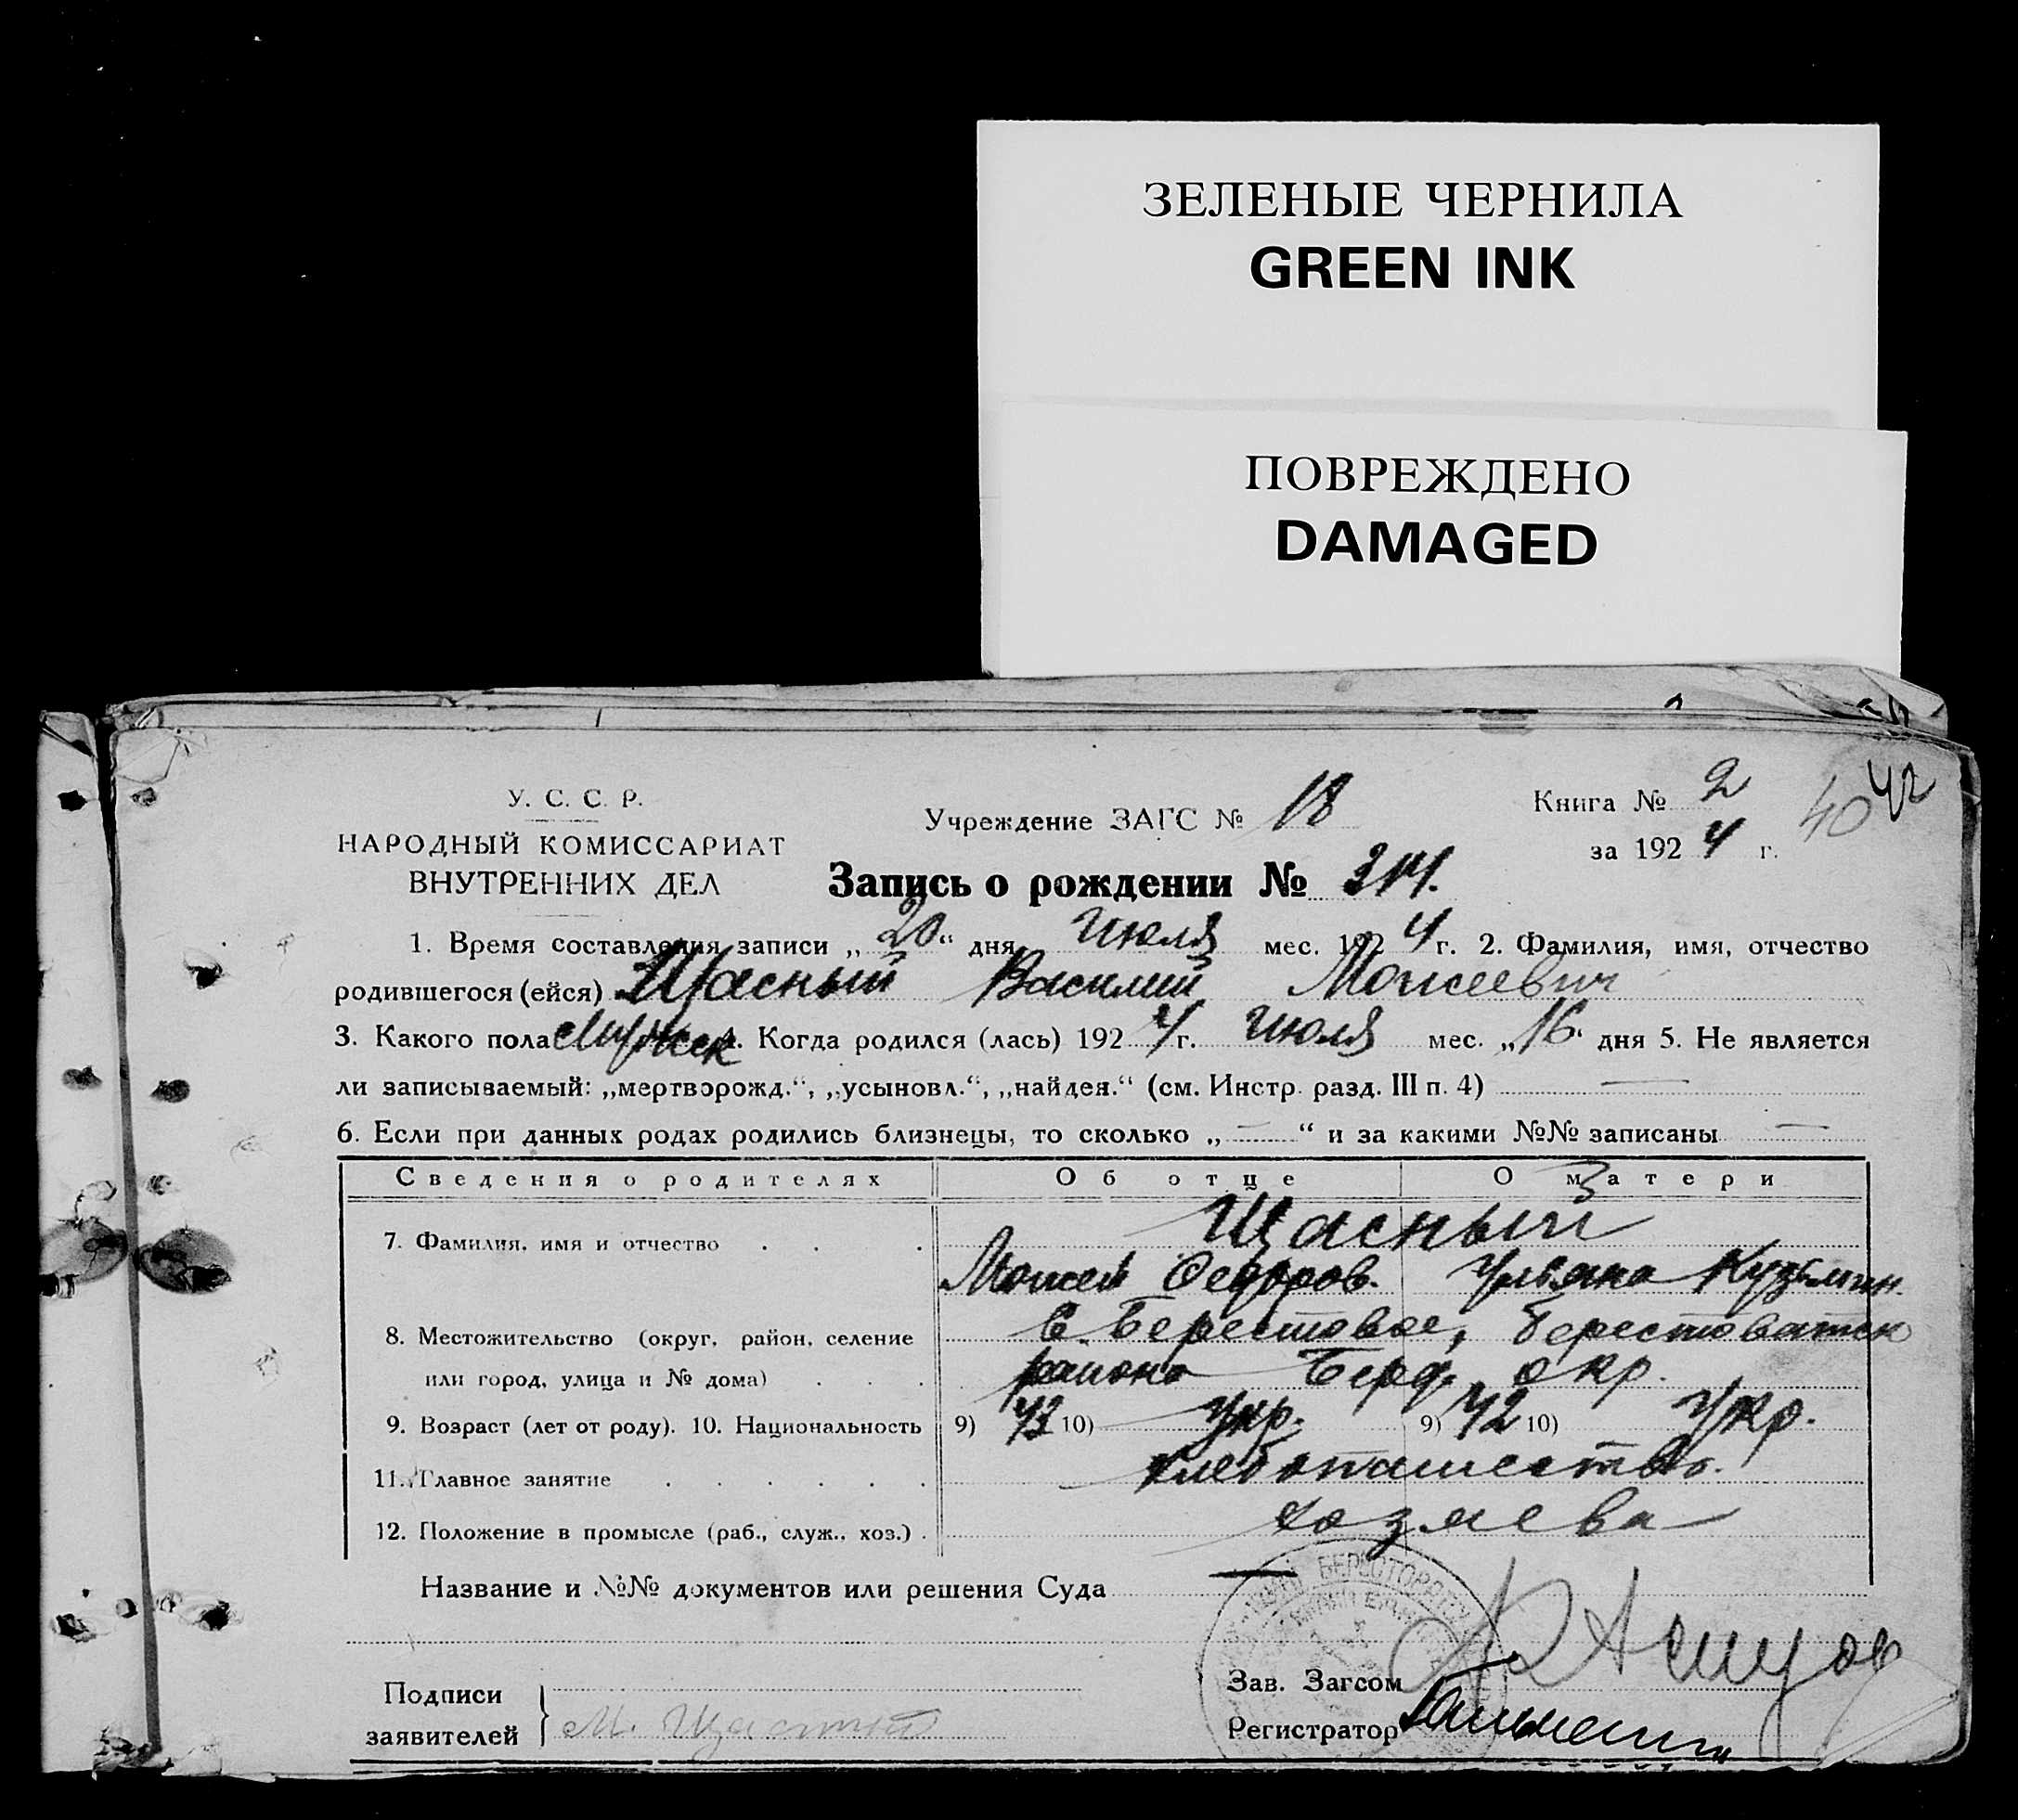 ЗЕЛЕНЫЕ ЧЕРНИЛА
GREEN INK
ПОВРЕЖДЕНО
DAMAGED
У. С. С. Р.
НАРОДНЫЙ КОМИССАРИАТ
ВНУТРЕННИХ ДЕЛ
Учреждение ЗАГС № 18
Книга № 2
40 42
за 1924 г.
Запись о рождении № 314.
1. Время составления записи „20“ дня Июля мес. 1924 г. 2. Фамилия, имя, отчество
родившегося (ейся) Щасный Василий Моисеевич
3. Какого пола Мужск 4. Когда родился (лась) 1924 г. Июля мес. „16“ дня 5. Не является
ли записываемый: „мертворожд.“, „усыновл.“, „найден.“ (см. Инстр. разд. III п. 4) —
6. Если при данных родах родились близнецы, то сколько „—“ и за какими №№ записаны —
Сведения о родителях Об отце О матери
Щасный
7. Фамилия, имя и отчество . . .
Моисей Федоров. Ульяна Кузьмин.
8. Местожительство (округ, район, селение С. Берестовое, Берестоватск
или город, улица и № дома) . . . района Берд. окр.
9. Возраст (лет от роду). 10. Национальность 9) 43 10) Укр. 9) 42 10) Укр.
11. Главное занятие . . . . . . Хлебопашество.
12. Положение в промысле (раб., служ., хоз.) . хозяева
Название и №№ документов или решения Суда —
Зав. Загсом
Подписи
заявителей } М. Щасный
Регистратор